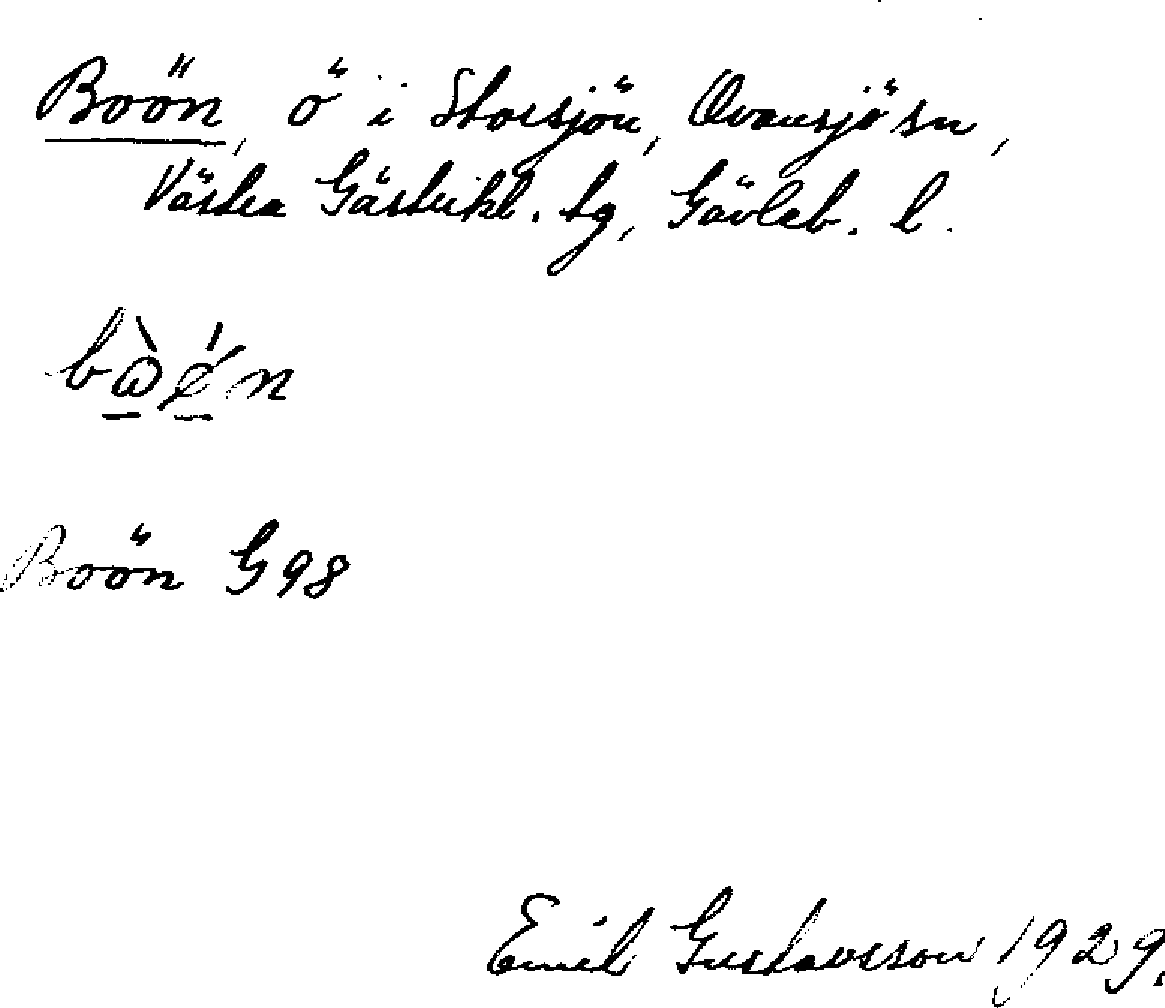 Boön, ö i Storsjön, Ovansjö sn,
Västra Gästrikl. tg, Gävleb. l.
Boön G 98
Emil Gustavsson 1929.